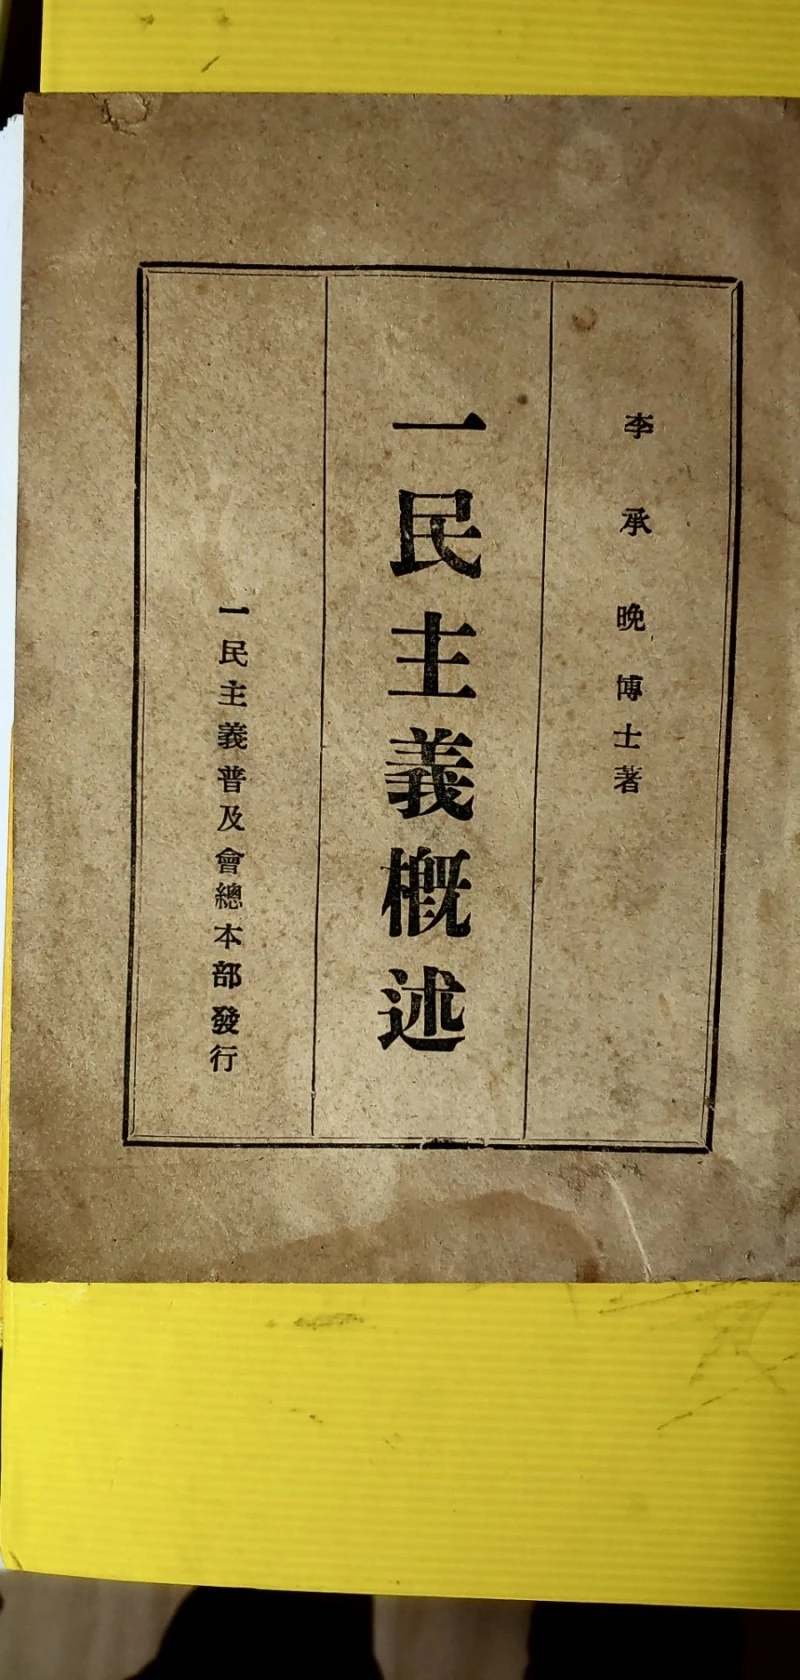 李承晩博士著
一民主義概述
一民主義普及會總本部發行